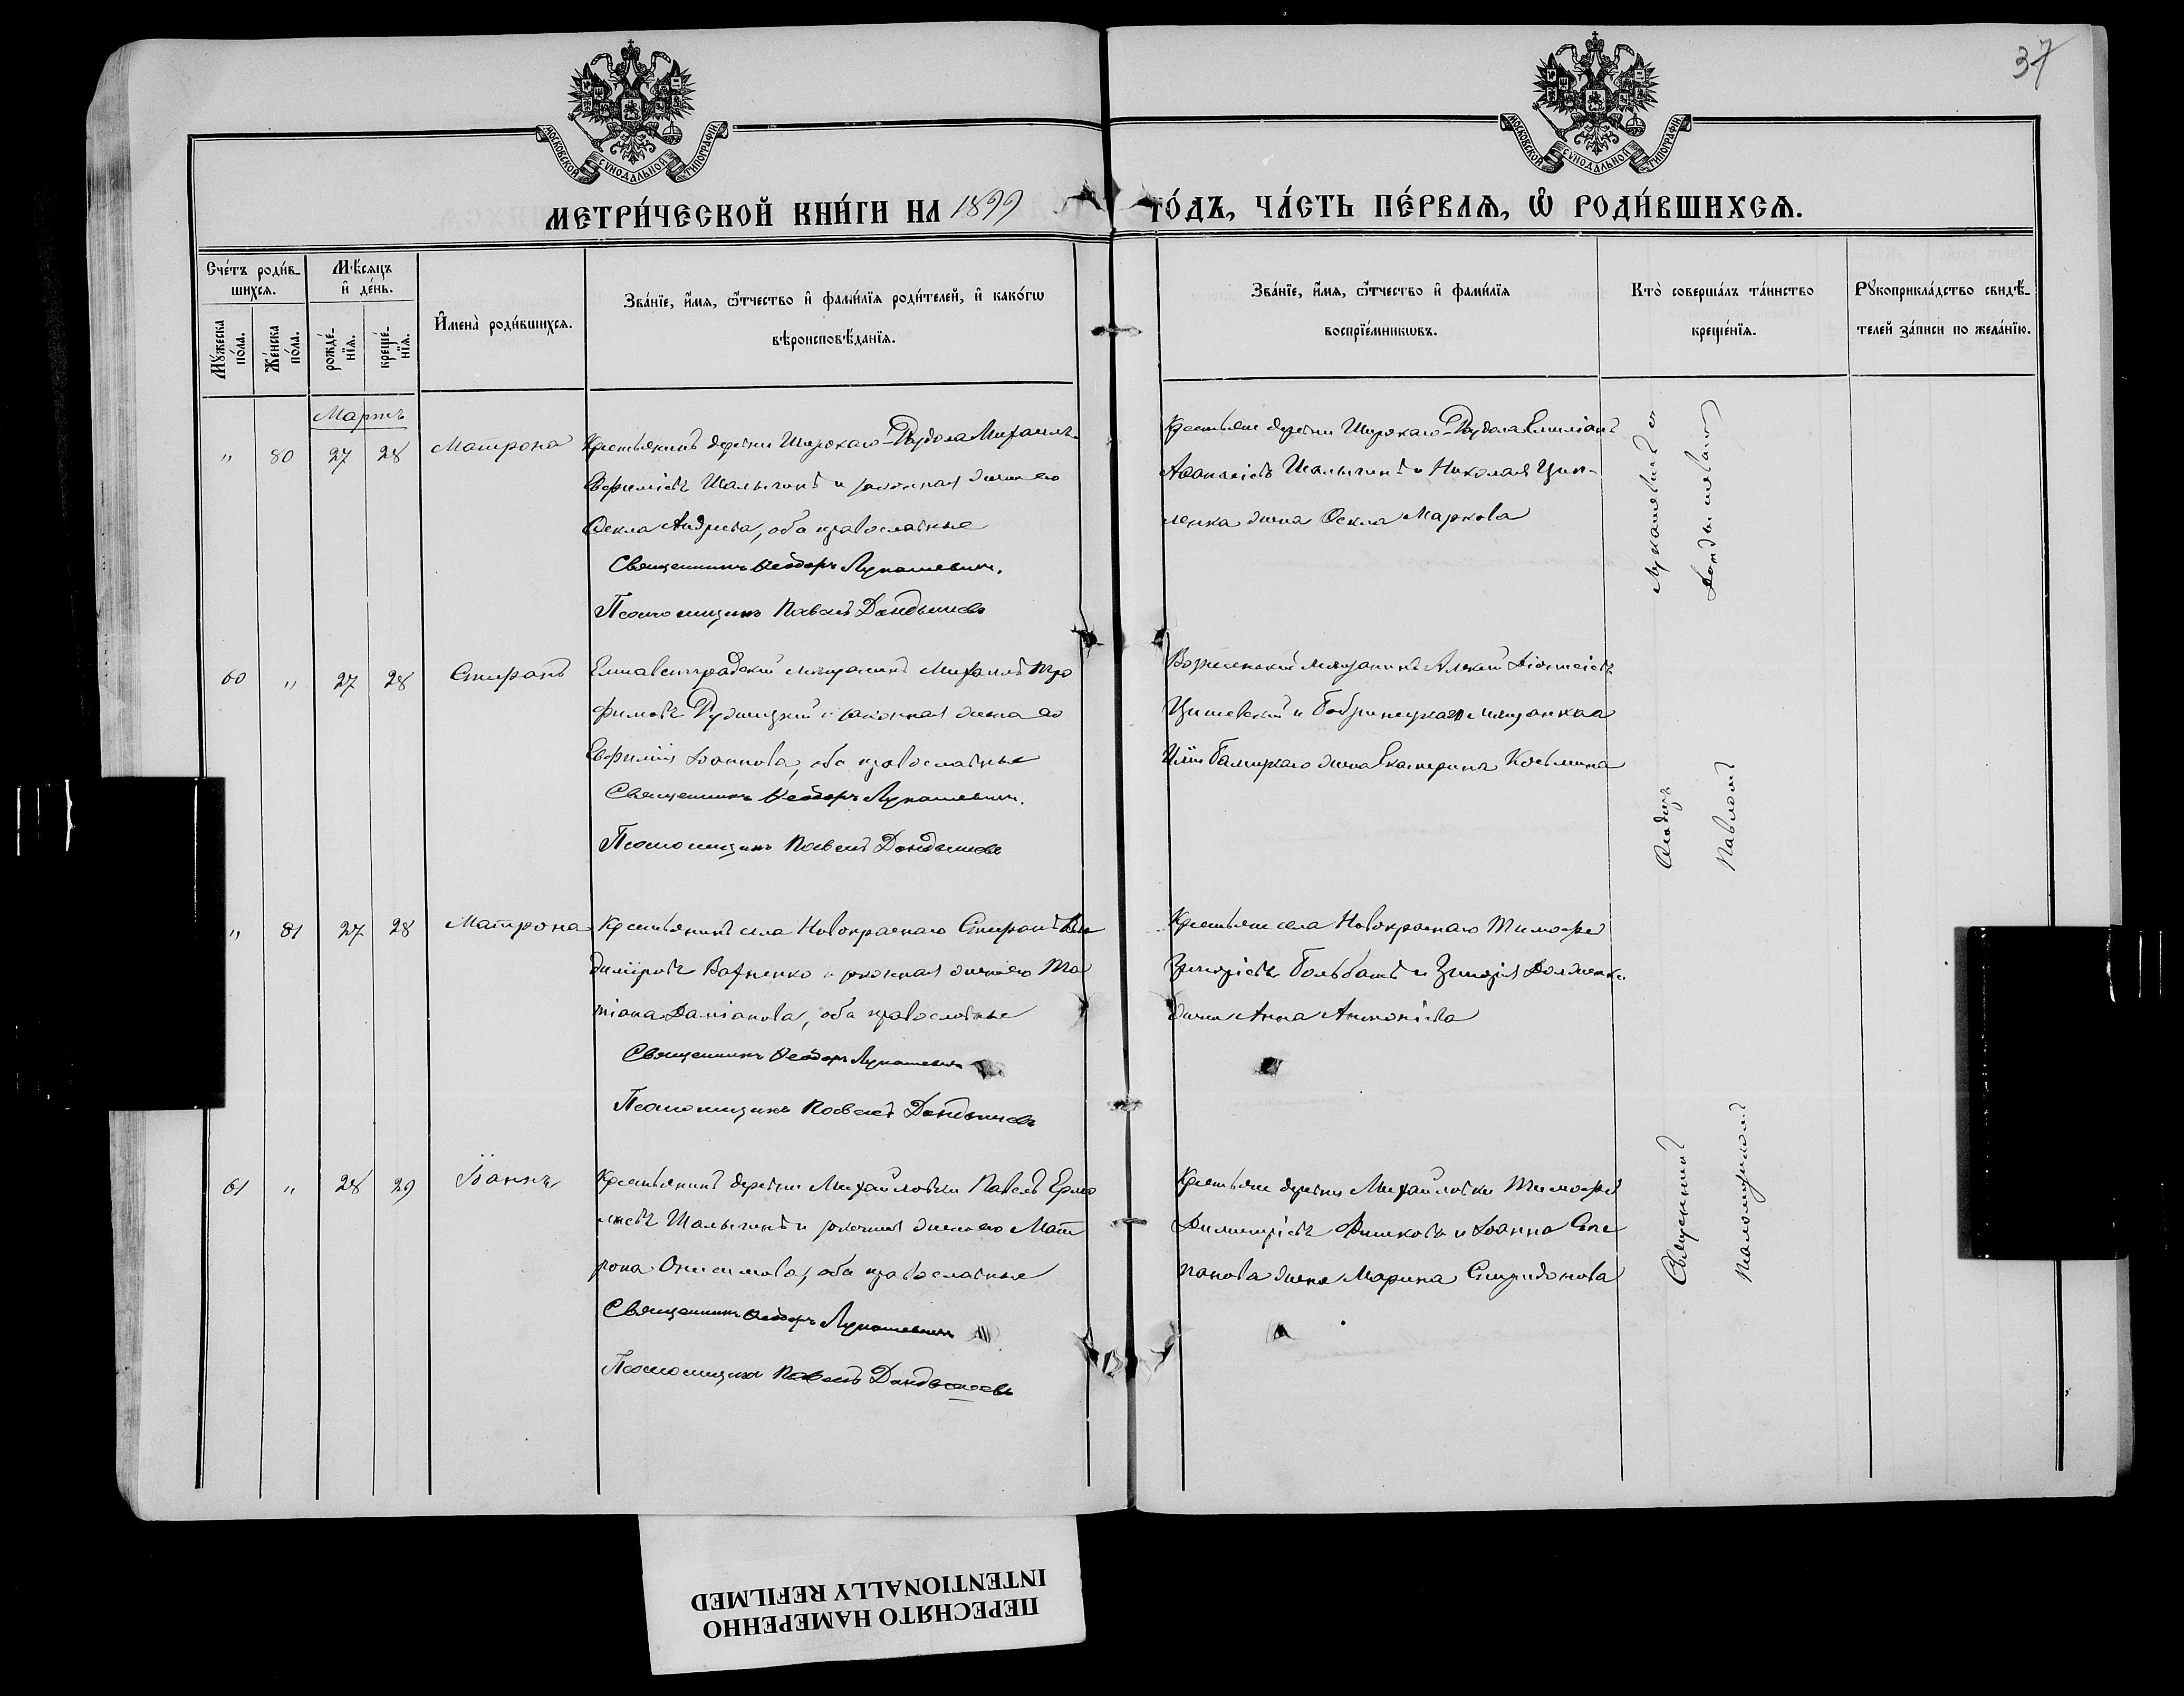 37
МОСКОВСКОЙ СѴНОДАЛЬНОЙ ТИПОГРАФІИ
МОСКОВСКОЙ СѴНОДАЛЬНОЙ ТИПОГРАФІИ
МЕТРИ́ЧЕСКОЙ КНИ́ГИ НА 1899 ГО́ДЪ, ЧА́СТЬ ПЕ́РВАѦ, Ѡ҆ РОДИ́ВШИХСѦ.
Сче́тъ роди́в-
шихсѧ.
Мѹ́жеска по́ла.
Же́нска по́ла.
Мѣ́сѧцъ
и҆ де́нь.
рожде́-
нїѧ.
креще́-
нїѧ.
И҆мена̀ роди́вшихсѧ.
Зва́нїе, и҆́мѧ, ѻ҆́тчество и҆ фами́лїѧ роди́телей, и҆ како́гѡ
вѣроисповѣ́данїѧ.
Зва́нїе, и҆́мѧ, ѻ҆́тчество и҆ фами́лїѧ
воспрїе́мникѡвъ.
Кто̀ соверша́лъ та́инство
креще́нїѧ.
Рѹкоприкла́дство свидѣ́-
телей за́писи по жела́нїю.
Мартъ
" 80 27 28 Матрона
Крестьянинъ деревни Широкаго-Раздола Михаилъ
Ефимовъ Шалыгинъ и законная жена его
Ѳекла Андреева, оба православные
Священникъ Ѳеодоръ Лукашевич.
Псаломщикъ Павелъ Дандышевъ
Крестьяне деревни Широкаго-Раздола Емиліанъ
Аѳанасіевъ Шалыгинъ и Николая Цип-
ленка жена Ѳекла Маркова
60 " 27 28
Елисаветградскій мѣщанинъ Михаилъ Тро
фимовъ Рудницкій и законная жена его
Евфимія Іоаннова, оба православные
Священникъ Ѳеодоръ Лукашевич.
Псаломщикъ Павелъ Дандышевъ
мѣщанинъ Алексій
и Бобринецкаго мѣщанина
жена Екатерина Косьмина
" 81 27 28 Матрона
Крестьянинъ села Новокраснаго Вла
диміровъ Вахненко и законная жена его Та
тіана Даміанова, оба православные
Священникъ Ѳеодоръ Лукашевич
Псаломщикъ Павелъ Дандышевъ
Крестьяне села Новокраснаго Тимоѳей
Григоріевъ Больбатъ и
жена Анна Антоніева
61 " 28 29 Іоаннъ
Крестьянинъ деревни Михайловки Павелъ Ермо
лаевъ Шалыгинъ и законная жена его Мат
рона Онисимова, оба православные
Священникъ Ѳеодоръ Лукашевич
Псаломщикъ Павелъ Дандышевъ
Крестьяне деревни Михайловки Тимоѳей
Димитріевъ и Іоанна Сте
панова жена Марина Спиридонова
Священникъ Ѳеодоръ Лукашевичъ съ
псаломщикомъ Павломъ Дандышевымъ
ПЕРЕСНЯТО НАМЕРЕННО
INTENTIONALLY REFILMED